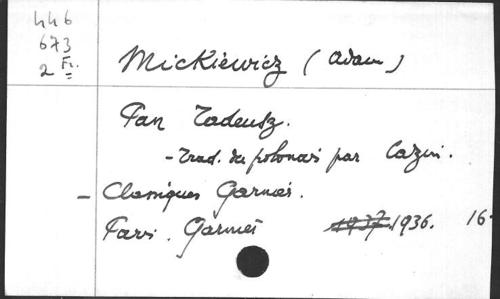 446
673
2 Fr.
Mickiewicz (Adam)
Pan Tadeusz.
- Trad. du polonais par Cazin.
- Classiques Garnier.
Paris. Garnier 1937 1936. 16-